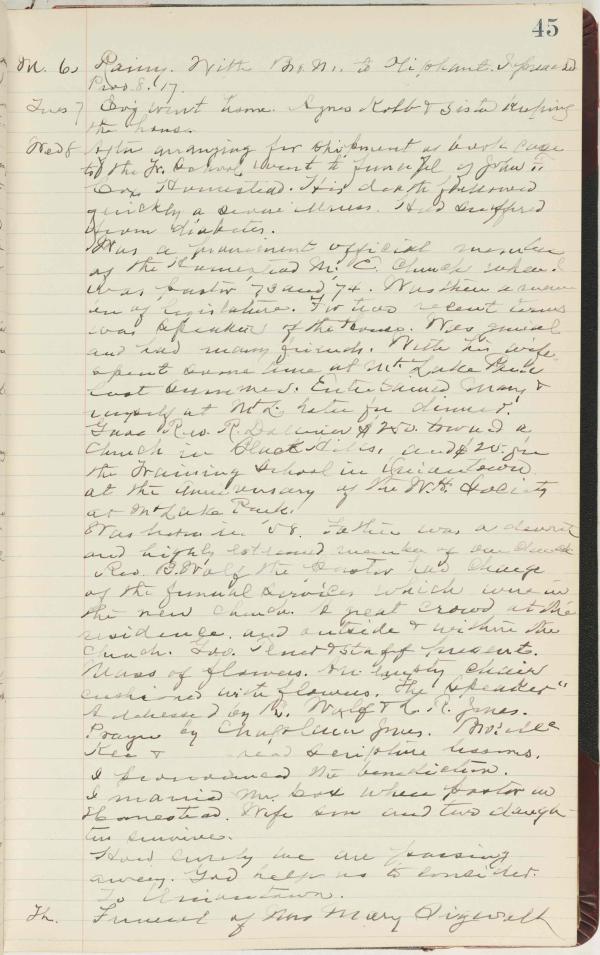 45
M. 6. Rainy. With Bro. N. to Oliphant. I preached
Prov. 8:17.
Tues 7 went home. Agnes Kolb & Sister keeping
the house.
Wed 8 After arranging for shipment of book case
to the Tr. School went to funeral of John F.
Cox Homestead. His death followed
quickly a severe illness. Had suffered
from diabetes.
Was a prominent official member
of the Homestead M. E. Church when I
was pastor '73 and '74. Was then a mem
ber of legislature. For two recent terms
was speaker of the House. Was genial
and had many friends. With his wife
spent some time at Mt. Lake Park
last summer. Entertained Mary &
myself at Mt. L. hotel for dinner.
Gave Rev. R. $250. toward a
Church in Black Hills, and $20. for
the Training School in Uniontown
at the anniversary of the W. H. Society
at Mt Lake Park.
Was born in '5 . Father was a devout
and highly esteemed member of our church
Rev. B. Wolf the Pastor had charge
of the funeral services which were in
the new church. A great crowd at the
residence, and outside & within the
Church. Gov. Tener & staff present.
Mass of flowers. An empty chair
cushioned with flowers. The "Speaker"
Addresses by B. Wolf & L. R. Jones.
Prayer by Chaplain Jones. Bro's Mc
Kee & read scripture lessons.
I pronounced the benediction.
I married Mr. Cox when pastor in
Homestead. Wife son and two daugh-
ters survive.
How surely we are passing
away. God help us to consider.
To Uniontown.
Th. Funeral of Mrs Mary